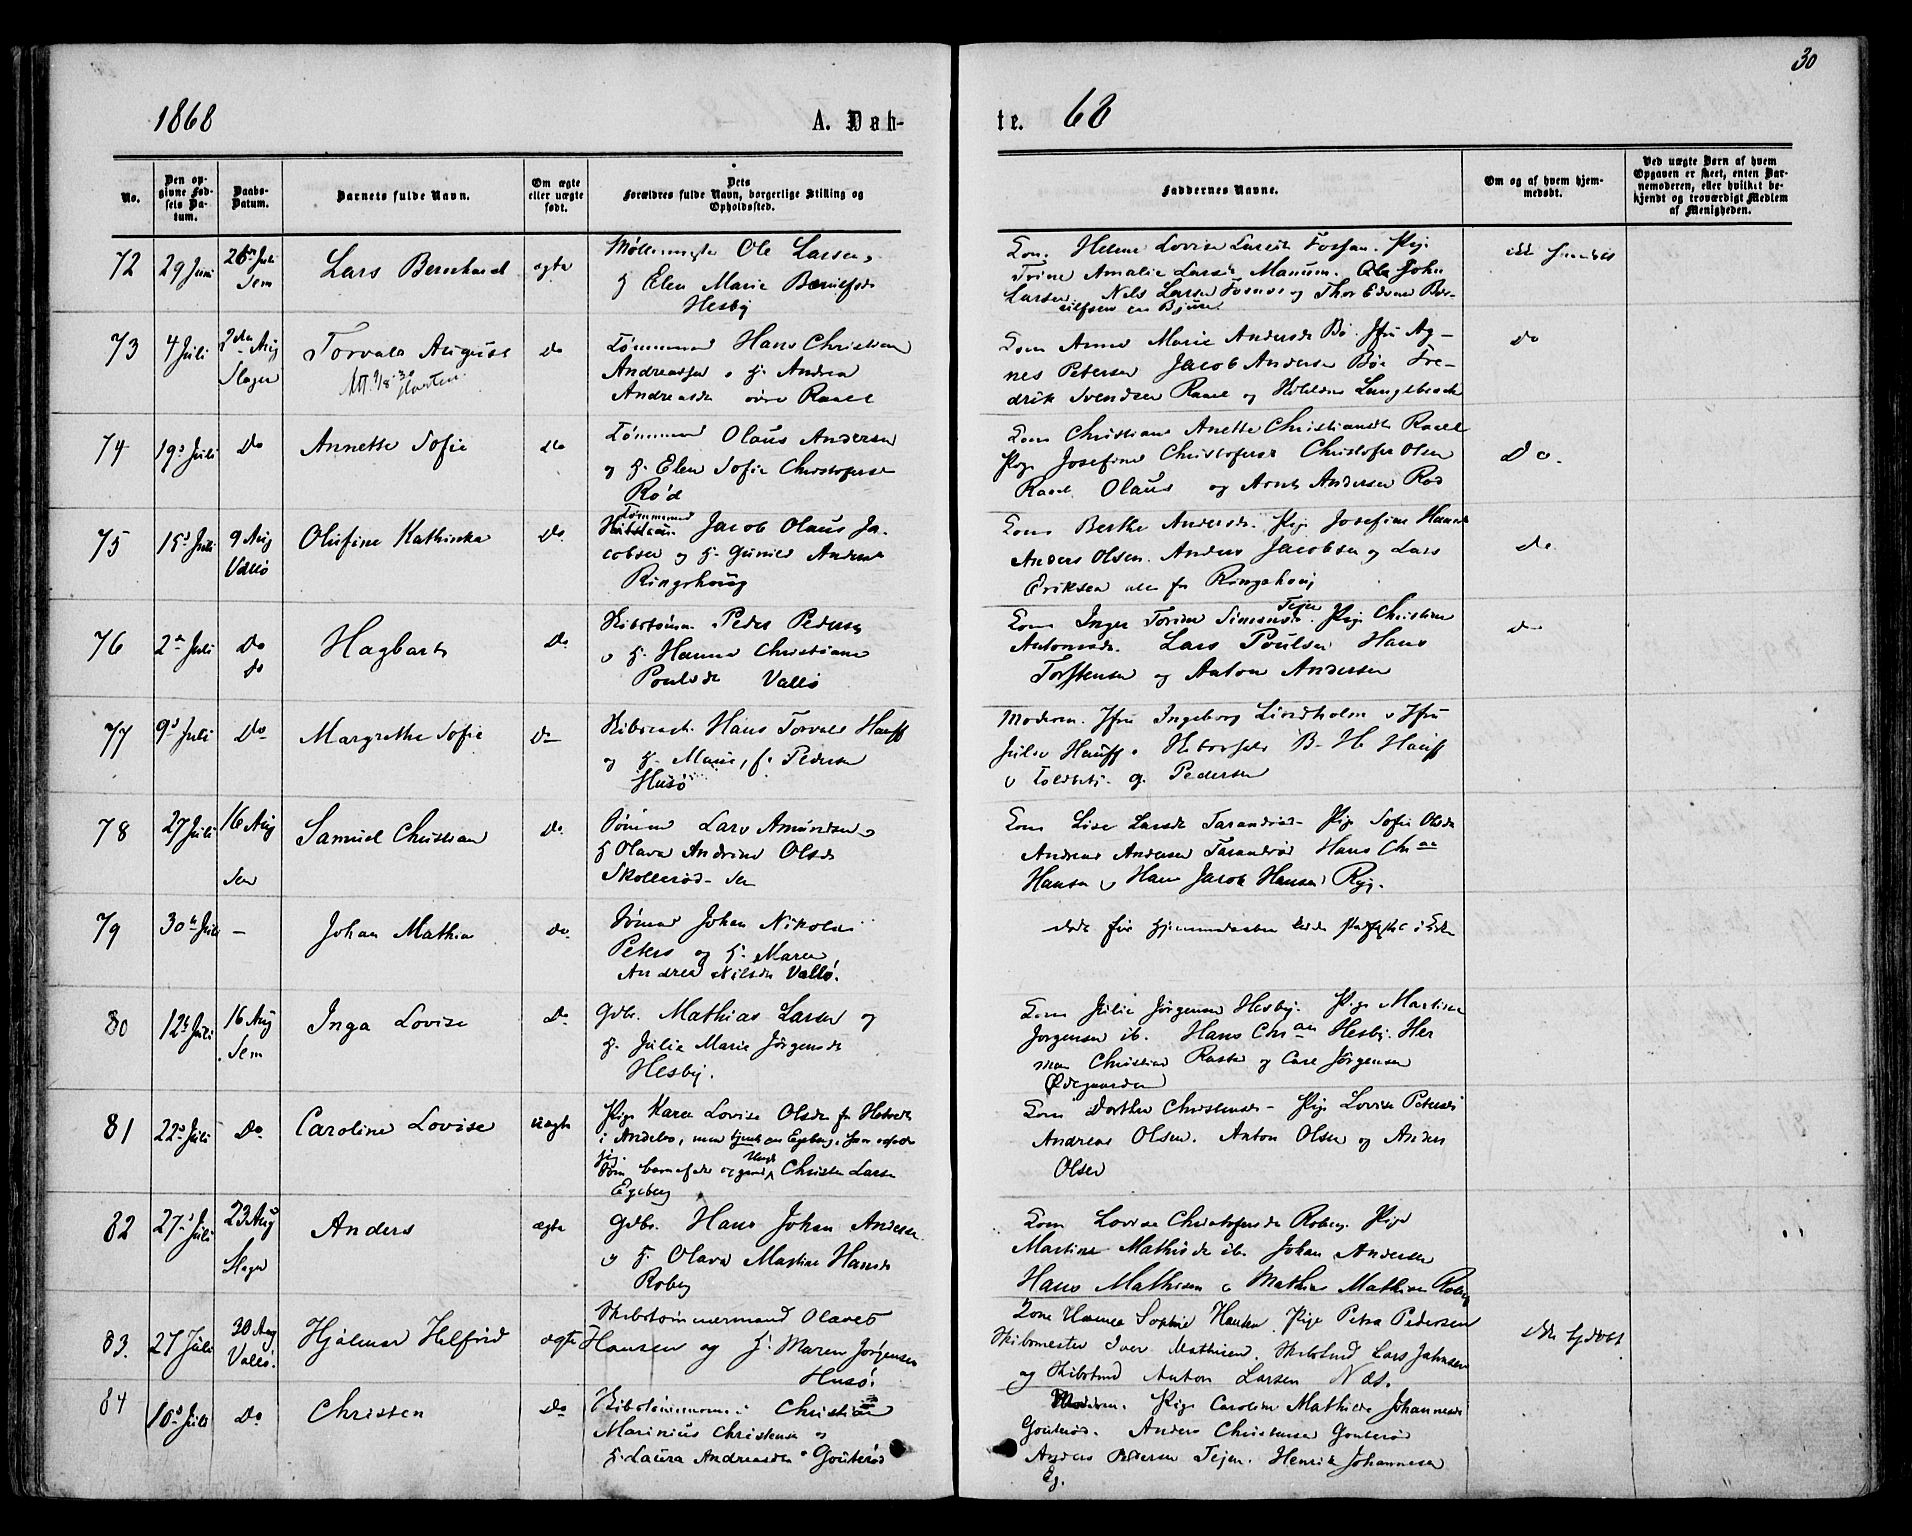 30
1868
A. Døb-
te.
68
No.
Den op-
givne Fød-
sels Da-
tum.
Daabs-
Datum.
Barnets fulde Navn.
Om ægte
eller uægte
født.
Dets
Forældres fulde Navn, borgerlige Stilling og
Opholdssted.
Faddernes Navne.
Om og af hvem hjem-
medøbt.
Ved uægte Børn af hvem
Opgaven er skeet, enten Bar-
nemoderen, eller hvilket be-
kjendt og troværdigt Medlem
af Menigheden.
72
29 Juni
26 Juli
Sem
Lars Bernhard
ægte
Ole Larsen
Elen Marie
Hesby
Kone Helene Lovise
Trine Amalie Manum. Ole John
Larsen Nels Larsen
73
4 Juli
2den Aug
Slagen
Torvald August
Do
Tømmermd Hans Christian
Andreassen o H. Andrea
Andreasdr Raael
Kone Anne Marie Andersdr Bø. Jfru Ag-
nes Petersen Jacob Andersen Bøe Fre-
drik Svendsen Raael og
74
19d Juli
Do
Annette Sofie
Do
Tømmermd Olaus Andersen
og H. Elen Sofie Christofersdr
Rød
Kone Christiane Anette Christiansdr Raael
Pige Josefine Christofersdr Christofer Olsen
Raael Olaus og Arnt Andersen Rød
Do.
75
15d Juli
9 Aug
Vallø
Olufine Kathinka
Do
Tømmermd
Jacob Olaus Ja-
cobsen og H. Gunild Andersdr
Ringshoug
Kone Berthe Andersdr. Pige Josefine Hansdr
Anders Olsen. Anders Jacobsen og Lars
Eriksen alle fr Ringshoug
Do
76
2den Juli
Do
do
Hagbart
Do
Peder Pedersen
o H. Hanna Christiane
Poulsdr Vallø
Kone Inger Torine Simensdr Tejen Pige Christine
Antonsdr. Lars Poulsen Hans
Torstensen og Anton Andersen
77
9d Juli
Do
Margrethe Sofie
Do
Hans Torvald Hauff
og H. Marie, f. Pedersen
Husø
Moderen. Jfru Ingeborg Lindholm o Jfru
Julie Hauff. B. H. Hauff
o Toldbetj. G. Pedersen
78
27 Juli
16 Aug
Sem
Samuel Christian
Do
Tømmd Lars Amundsen o
H Olava Andrine Olsdr
Skollerød Sem
Kone Lise Larsdr Tarandrød Pige Sofie Olsdr
Andreas Andersen Tarandrød Hans Chr an
Hansen o Hans Jacob Hansen Ryg.
79
30te Juli
—
Johan Mathia
Do
Sømand Johan Nikolai
Peters og H. Maren
Andrea Nilsdr Vallø.
80
12te Juli
16 Aug
Sem
Inga Lovise
Do
Gdbr. Mathias Larsen og
H. Julie Marie Jørgensdr
Hesby.
Kone Julie Jørgensen Hesby. Pige Martine
Jørgensen ib. Hans Chr an Hesby. Her
man Christian Rasta og Carl Jørgensen
Ødegaarden
81
22d Juli
Do
Caroline Lovise
Uægte
Pige Karen Lovise Olsdr fr
i Andebo, men tjente
Christen Larsen
Egeberg
Kone Dorthea Christensdr. Pige Lovise Petersdr
Andreas Olsen. Anton Olsen og Anders
Olsen
82
27d Juli
23 Aug
Slagen
Anders
ægte
Gdbr. Hans Johan Andersen
o H. Olava Mastine Hansdr
Roberg
Kone Lovise Christofersdr Roberg. Pige
Martine Mathisdr ib. Johan Andersen
Hans Mathisen o Mathias Mathisen Roberg
83.
27 Juli
30 Aug
Vallø.
Hjalmar Helfrid
ægte
Skibstømmermand Olavet
Hansen og H. Maren Jørgensen
Husø.
Kone Hanna Sophie Hansen. Pige Petra Pedersen
Skibmester Iver Mathisen. Skibstmd Lars Jahnsen
og Skibstmd Anton Larsen Næs.
ikke hjdøbt
84
10d Juli
Do
Christen
Do
Christian
Marinius Christensen og
H. Laura Andreasdr Gouterød
Moderen. Pige Caroline Mathilde Johannesdr
Gouterød. Anders Christensen Gouterød
Anders Pedersen Tejen. Henrik Johannesen
Eg.